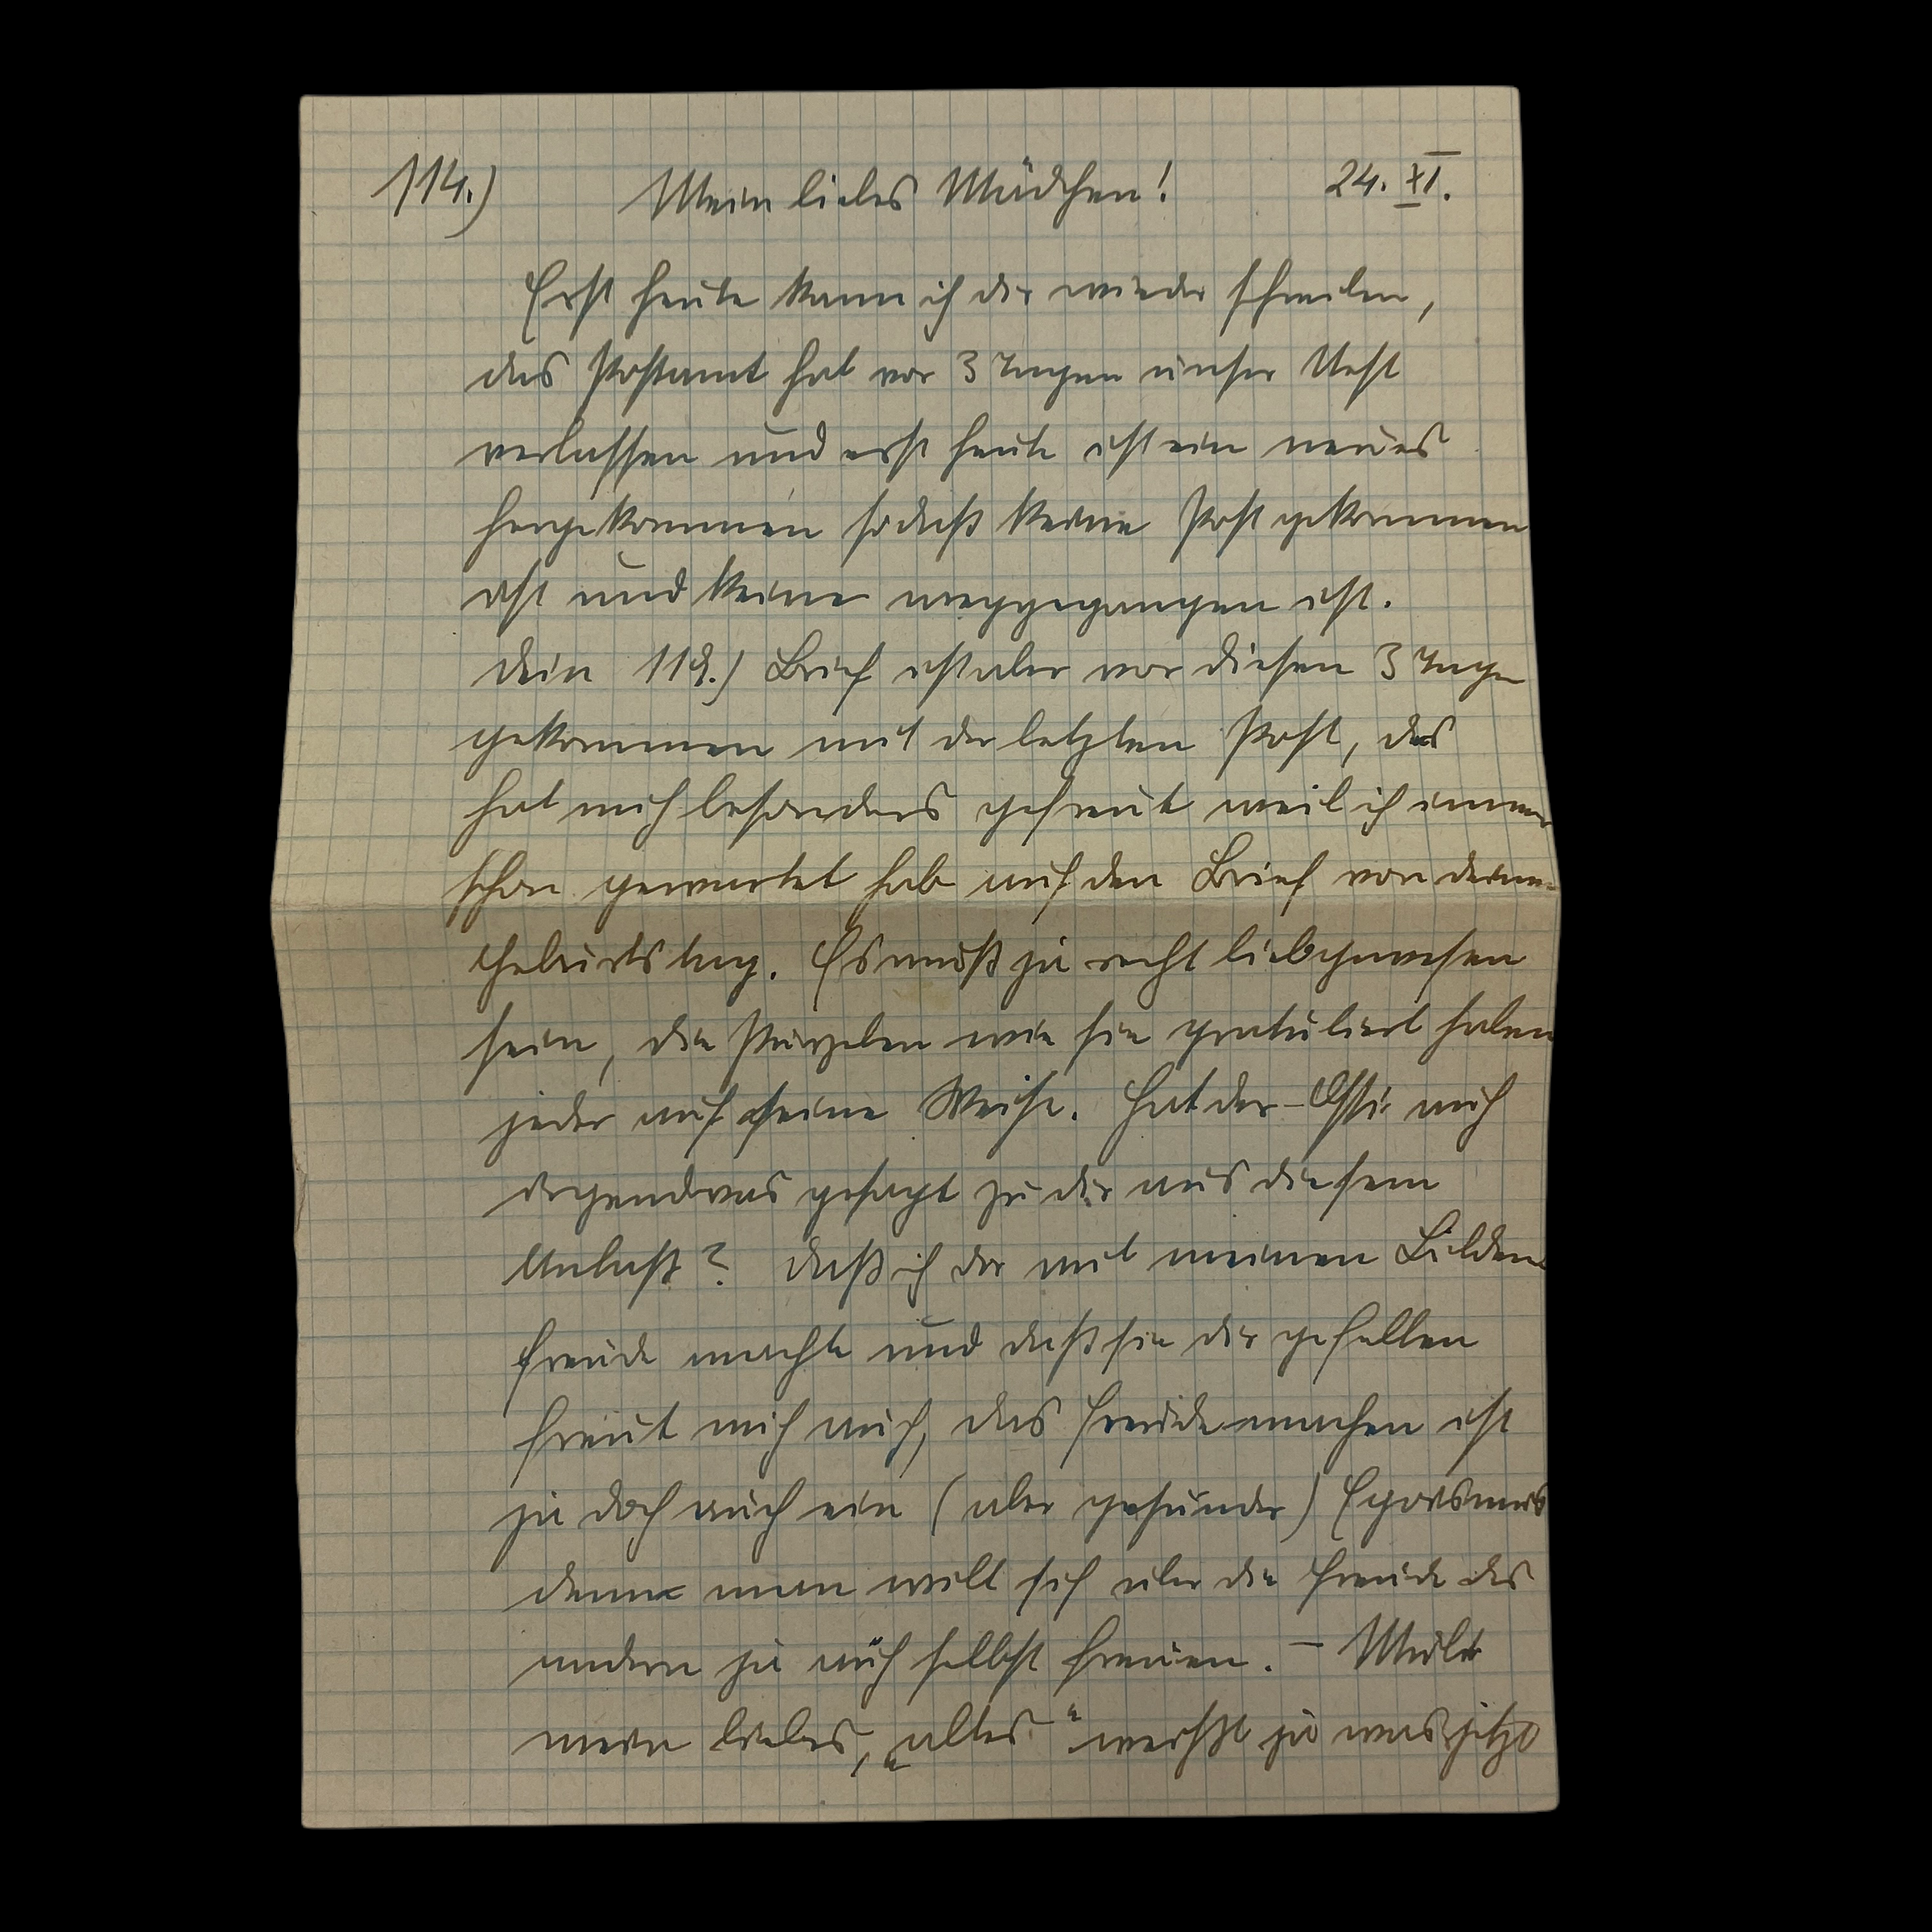 114.) Mein liebes Mädchen! 24. XI.
Erst heute kann ich dir wieder schreiben,
das Postamt hat vor 3 Tagen unser Nest
verlassen und erst heute ist ein neues
hergekommen sodaß keine Post gekommen
ist und keine weggegangen ist.
Dein Brief ist aber vor diesen 3 Tagen
gekommen mit der letzten Post, das
hat mich besonders gefreut weil ich immer
schon gewartet hab auf den Brief von deinem
Geburtstag. Es muß ja recht lieb gewesen
sein, die wie sie gratuliert haben
jeder auf seine Weise. Hat der Ossi auch
irgendwas gesagt zu dir aus diesem
Anlaß? Daß ich dir mit meinen Bildern
Freude machte und daß sie dir gefallen
freut mich auch, das Freude machen ist
ja doch auch ein (aber gesunder) Egoismus
denn man will sich über die Freude des
andern ja auch selbst freuen. –
mein liebes, „altes" weißt ja was jetzt